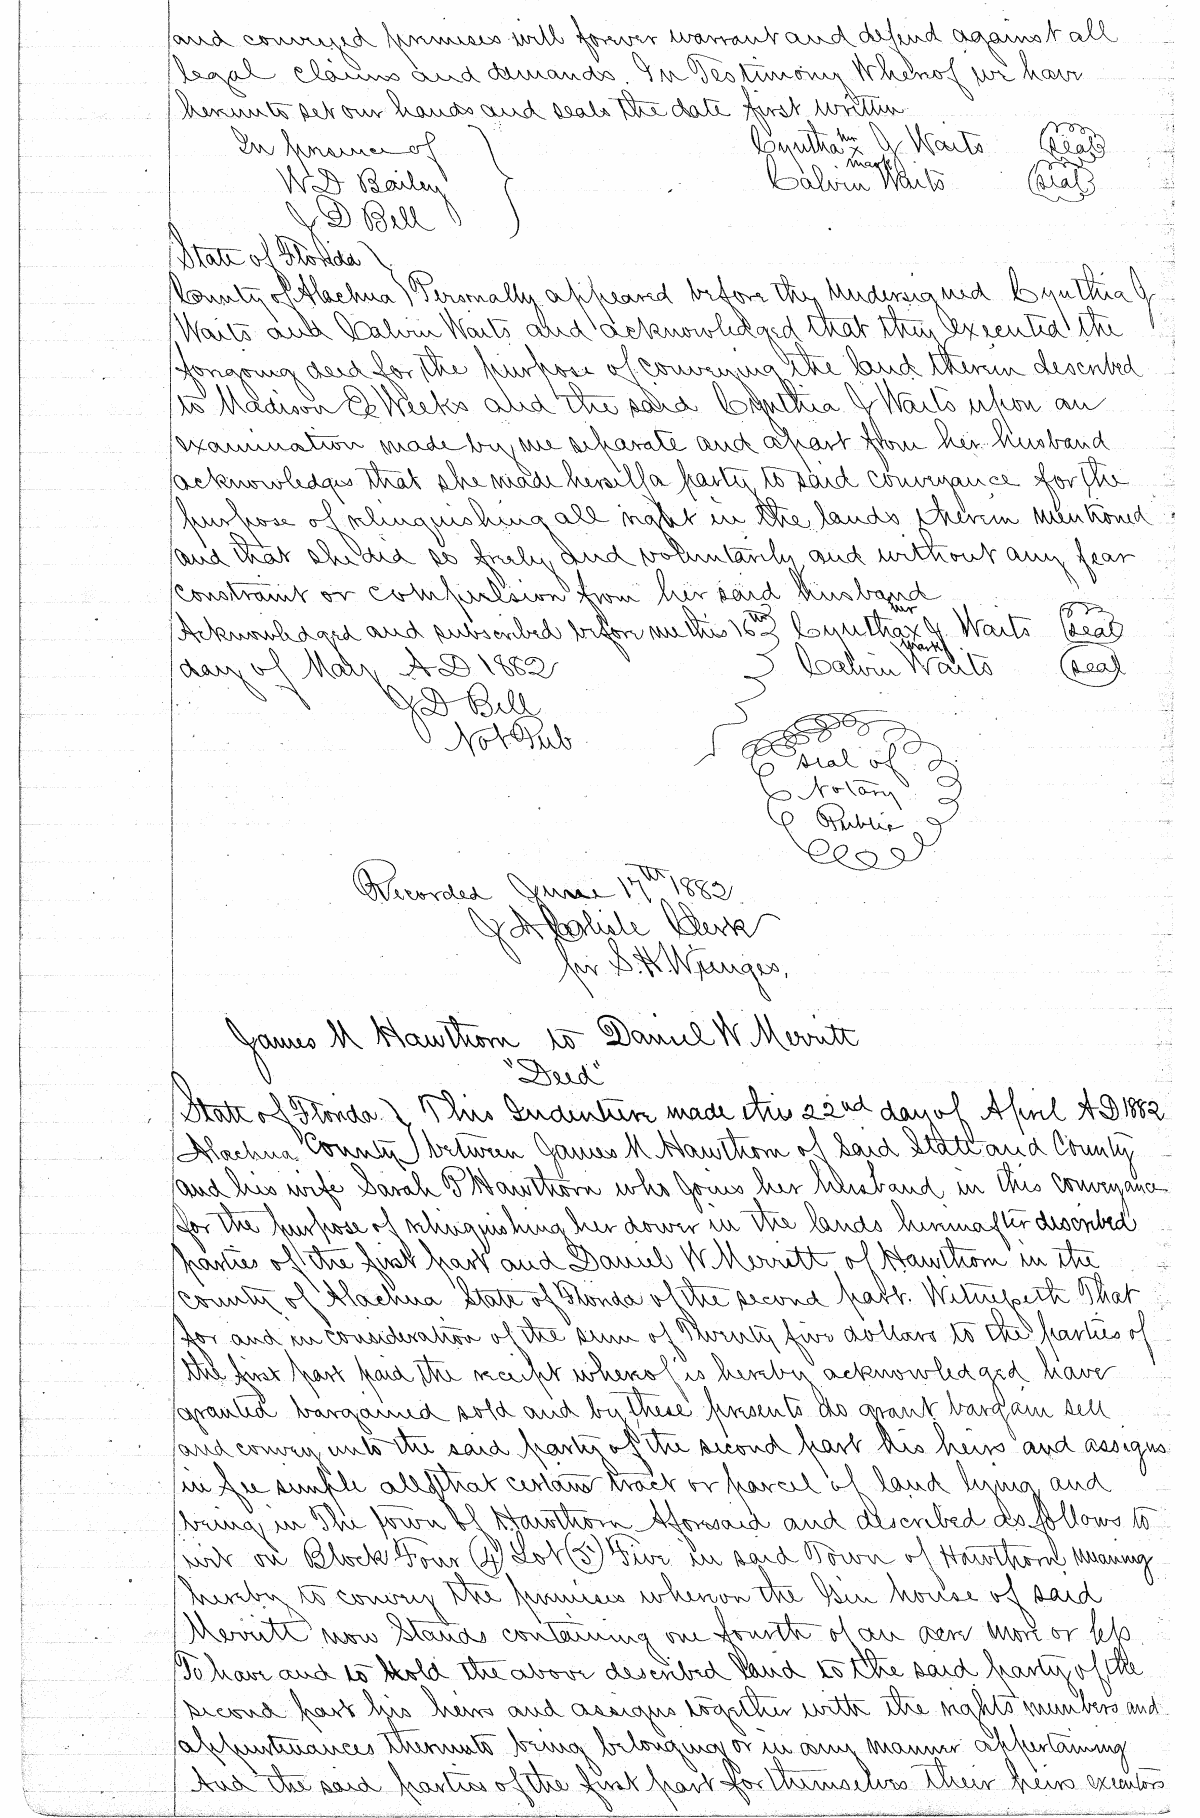 and conveyed premises will forever warrant and defend against all
legal claims and demands. In Testimony Whereof we have
hereunto set our hands and seals the date first written
In presence of
W D Bailey
J D Bell
Cyntha her x mark J Waits (seal)
Calvin Waits (seal)
State of Florida
County of Alachua Personally appeared before the undersigned Cynthia J
Waits and Calvin Waits and acknowledged that they executed the
forgoing deed for the purpose of conveying the land therein described
to Madison Weeks and the said Cynthia J Waits upon an
examination made by me separate and apart from her husband
acknowledges that she made herself a party to said conveyance for the
purpose of relinquishing all right in the lands therein mentioned
and that she did so freely and voluntarily and without any fear
constraint or compulsion from her said husband
Acknowledged and subscribed before me this 16th
day of May A D 1882
J D Bell
Not Pub
Cyntha her x mark J Waits (seal)
Calvin Waits (seal)
seal of
Notary
Public
Recorded June 17th 1882
J A Carlisle Clerk
pr S. H.
James M Hawthorn to Daniel W Merritt
"Deed"
State of Florida This Indenture made this 22nd day of April A D 1882
Alachua County between James M Hawthorn of Said State and County
and his wife Sarah P Hawthorn who joins her husband in this conveyance
for the purpose of relinquishing her dower in the lands hereinafter described
parties of the first part and Daniel W Merritt of Hawthorn in the
County of Alachua State of Florida of the second part. Witnesseth That
for and in consideration of the sum of Twenty five dollars to the parties of
the first part paid the receipt whereof is hereby acknowledged have
granted bargained sold and by these presents do grant bargain sell
and convey unto the said party of the second part his heirs and assigns
in fee simple all that certain tract or parcel of land lying and
being in The Town of Hawthorn Aforesaid and described as follows to
wit on Block Four (4) Lot (5) Five in said Town of Hawthorn meaning
hereby to convey the premises whereon the Gin house of said
Merritt now Stands containing one fourth of an acre more or less
To have and to hold the above described land to the said party of the
second part his heirs and assigns together with the rights members and
appurtenances thereunto being belonging or in any manner appertaining
And the said parties of the first part for themselves their heirs executors